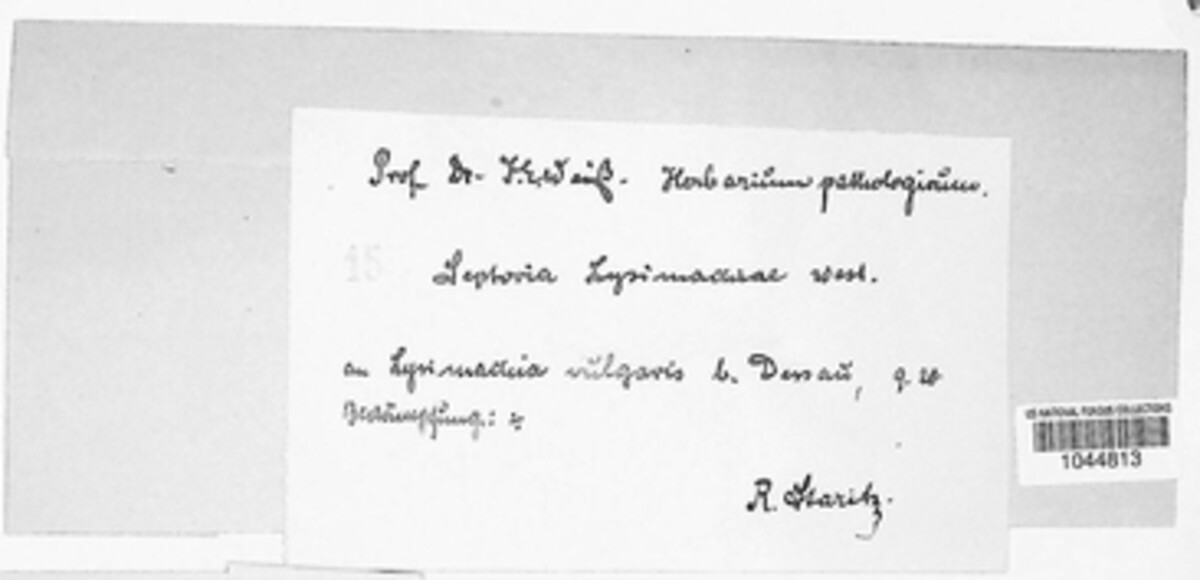 Prof. Dr. J. E. Weiß. Herbarium pathologicum.
15
Septoria Lysimachiae West.
an Lysimachia vulgaris b. Dessau,
Bekämpfung: 
R. Staritz.
US NATIONAL FUNGUS COLLECTIONS
1044813